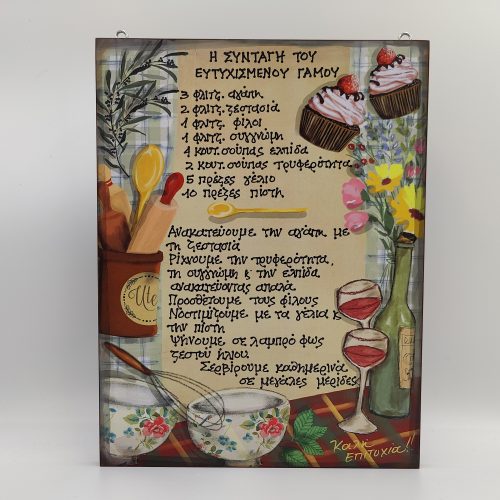 Η ΣΥΝΤΑΓΗ ΤΟΥ
ΕΥΤΥΧΙΣΜΕΝΟΥ ΓΑΜΟΥ
3 φλιτζ. αγάπη
2 φλιτζ. ζεστασιά
1 φλιτζ. φίλοι
1 φλιτζ. συγγνώμη
4 κουτ. σούπας ελπίδα
2 κουτ. σούπας τρυφερότητα
5 πρέζες γέλιο
10 πρέζες πίστη
Ανακατεύουμε την αγάπη με
τη ζεστασιά
Ρίχνουμε την τρυφερότητα,
τη συγγνώμη & την ελπίδα
ανακατεύοντας απαλά
Προσθέτουμε τους φίλους
Νοστιμίζουμε με τα γέλια &
την πίστη
Ψήνουμε σε λαμπρό φως
ζεστού ήλιου
Σερβίρουμε καθημερινά
σε μεγάλες μερίδες
Ute
Καλή
Επιτυχία!!